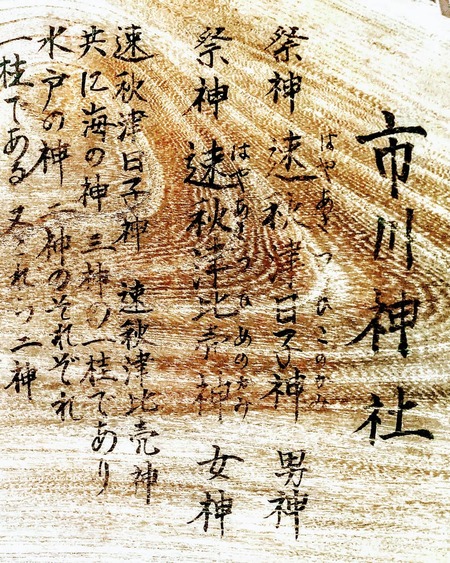 市川神社
はやあきつひこのかみ
祭神 速秋津日子神 男神
はやあきつひめのかみ
祭神 速秋津比売神 女神
速秋津日子神 速秋津比売神
共に海の神 三神の一柱であり
水戸の神 二神のそれぞれ
一柱である 又これら二神